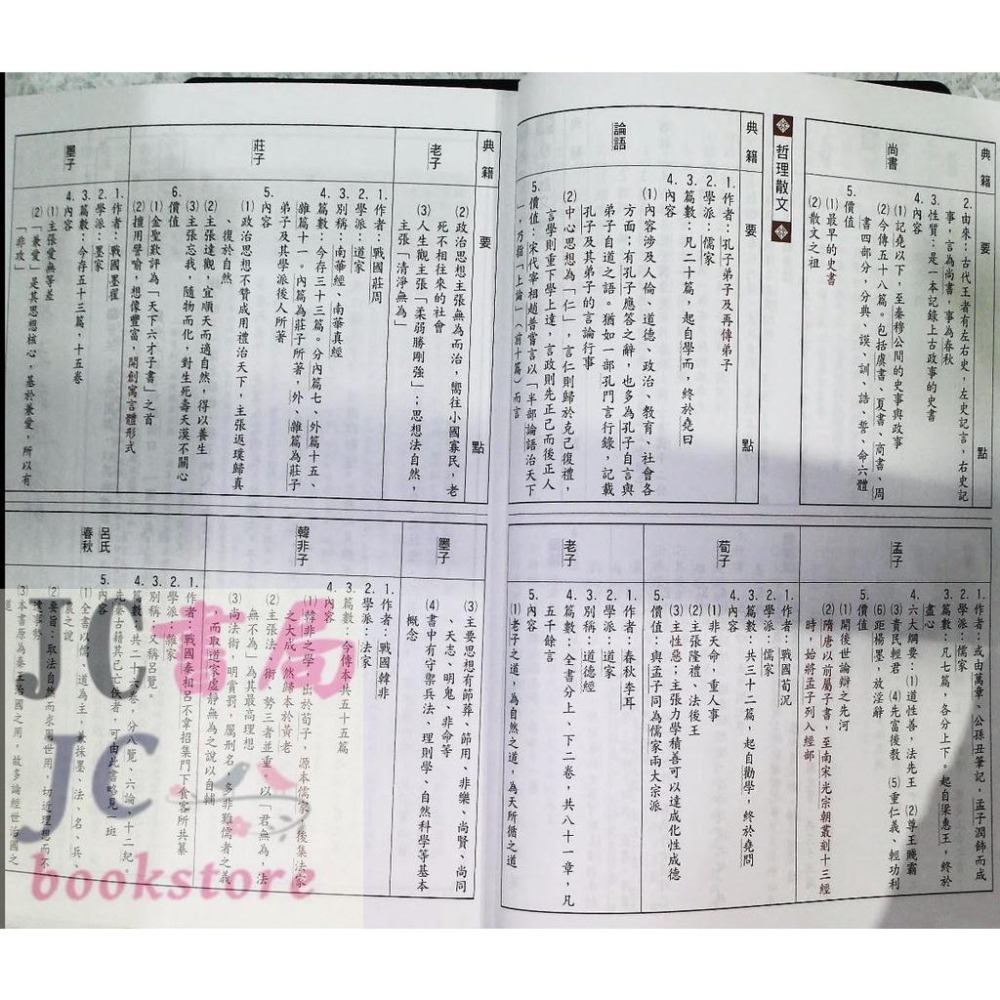 典籍 要點
尚書
2. 由來：古代王者有左右史，左史記言，右史記
事，言為尚書，事為春秋
3. 性質：是一本記錄上古政事的史書
4. 內容
⑴記堯以下，至秦穆公間的史事與政事
⑵今傳五十八篇。包括虞書、夏書、商書、周
書四部分，分典、謨、訓、誥、誓、命六體
5. 價值
⑴最早的史書
⑵散文之祖
哲理散文
典籍 要點
論語
1. 作者：孔子弟子及再傳弟子
2. 學派：儒家
3. 篇數：凡二十篇，起自學而，終於堯曰
4. 內容
⑴內容涉及人倫、道德、政治、教育、社會各
方面；有孔子應答之辭，也多為孔子自言與
弟子自道之語。猶如一部孔門言行錄，記載
孔子及其弟子的言論行事
⑵中心思想為「仁」，言仁則歸於克己復禮，
言學則重下學上達，言政則先正己而後正人
5. 價值：宋代宰相趙普嘗言以「半部論語治天下
」，乃指「上論」（前十篇）而言
孟子
1. 作者：或由萬章、公孫丑筆記，孟子潤飾而成
2. 學派：儒家
3. 篇數：凡七篇，各分上下。起自梁惠王，終於
盡心
4. 六大綱要：⑴道性善，法先王 ⑵尊王賤霸
⑶貴民輕君 ⑷先富後教 ⑸重仁義、輕功利
⑹距楊墨，放淫辭
5. 價值
⑴開後世論辯之先河
⑵隋唐以前屬子書，至南宋光宗朝叢刻十三經
時，始將孟子列入經部
荀子
1. 作者：戰國荀況
2. 學派：儒家
3. 篇數：共三十二篇，起自勸學，終於堯問
4. 內容
⑴非天命，重人事
⑵主張隆禮、法後王
⑶主性惡；主張力學積善可以達成化性成德
5. 價值：與孟子同為儒家兩大宗派
老子
1. 作者：春秋李耳
2. 學派：道家
3. 別稱：道德經
4. 篇數：全書分上、下二卷，共八十一章，凡
五千餘言
5. 內容
⑴老子之道，為自然之道，為天所循之道
典籍 要點
老子
⑵政治思想主張無為而治，嚮往小國寡民，老
死不相往來的社會
⑶人生觀主張「柔弱勝剛強」；思想法自然，
主張「清淨無為」
莊子
1. 作者：戰國莊周
2. 學派：道家
3. 別稱：南華經、南華真經
4. 篇數：今存三十三篇。分內篇七、外篇十五、
雜篇十一。內篇為莊子所著，外、雜篇為莊子
弟子及其學派後人所著
5. 內容
⑴政治思想不贊成用禮治天下，主張返璞歸真
、復於自然
⑵主張達觀，宜順天而適自然，得以養生
⑶主張忘我，隨物而化，對生死壽夭漠不關心
6. 價值
⑴金聖歎評為「天下六才子書」之首
⑵擅用譬喻，想像豐富，開創寓言體形式
墨子
1. 作者：戰國墨翟
2. 學派：墨家
3. 篇數：今存五十三篇，十五卷
4. 內容
⑴主張愛無等差
⑵「兼愛」是其思想核心，基於兼愛，所以有
「非攻」
墨子
⑶主要思想有節葬、節用、非樂、尚賢、尚同
、天志、明鬼、非命等
⑷書中有守禦兵法、理則學、自然科學等基本
概念
韓非子
1. 作者：戰國韓非
2. 學派：法家
3. 篇數：今傳本共五十五篇
4. 內容
⑴韓非之學，出於荀子，源本儒家，後集法家
之大成，然歸本於黃老
⑵主張法、術、勢三者並重，以「君無為，法
無不為」為其最高理想
⑶尚法術，明賞罰，屬刑名，多非難儒者之義
而取道家虛靜無為之說以自輔
呂氏春秋
1. 作者：戰國秦相呂不韋招集門下食客所共纂
2. 學派：雜家
3. 別稱：又稱呂覽。
4. 篇數：共二十六卷，分八覽、六論、十二紀。
先秦古籍其已亡佚者，可由此書略見一斑
5. 內容
⑴全書以儒、道為主，兼採墨、法、名、兵、
農之說
⑵要旨：取法自然而求周世用，切近理想而不
違事勢
⑶本書原為秦王治國之用，故多論經世治國之
道
JC書局
JC
bookstore